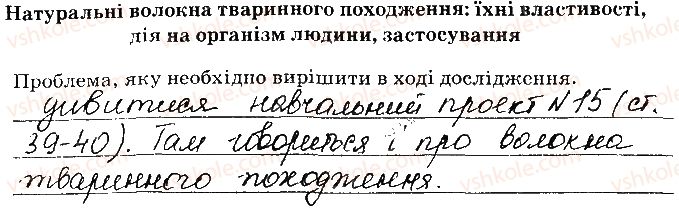 Натуральні волокна тваринного походження: їхні властивості,
дія на організм людини, застосування
Проблема, яку необхідно вирішити в ході дослідження.
дивитися навчальний проект N 15 (ст.
39-40). Там говориться і про волокна
тваринного походження.